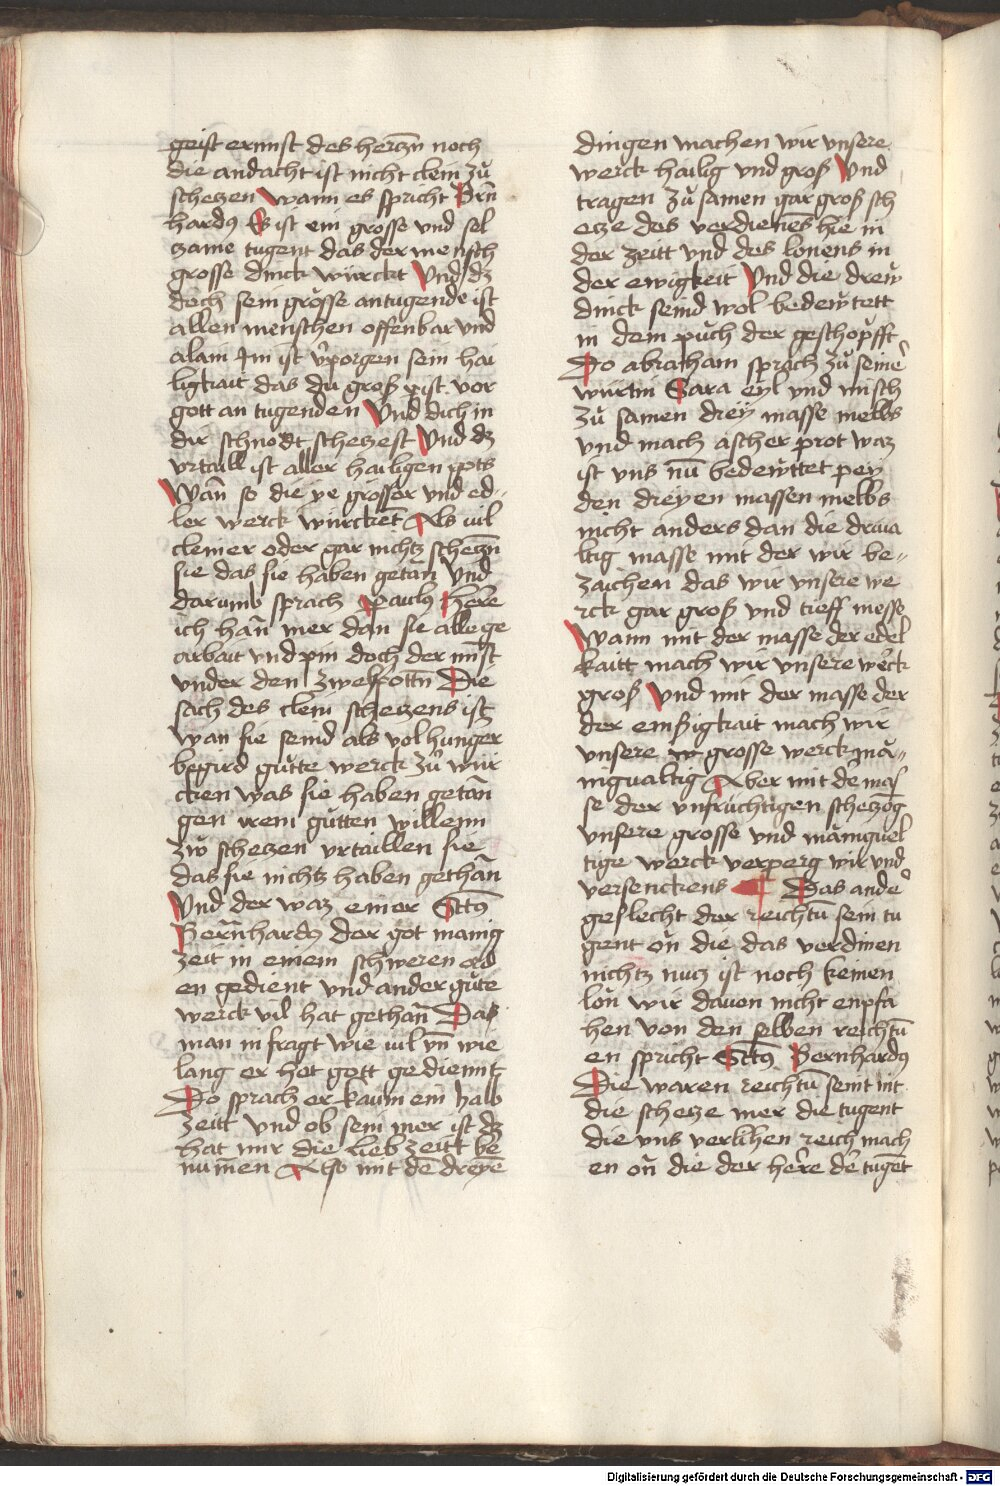 geist ernnst des hertzn̄ noch
die andacht ist nicht clein zů
schetzen Wann es spricht Brn̄
hardꝯ Es ist ein grosse vnd sel
zame tugent das der mensch
grosse dinck würckt Vnd dz
doch sein grösse an tugende ist
allen menschen offenbar vnd
alain im ist v̓porgen sein hai
ligkait das du groß pist vor
gott an tugenden Vnd dich in
dir schnödt schetzest Vnd dz
vrtaill ist aller hailigen gots
Wān so die ye grösser vnd ed-
ler werck würckēt Als vil
cleiner oder gar nichtz schetzn̄
sie das sie haben getān Vnd
darumb sprach paulꝯ Herre
ich hān mer dan sie alle ge
arbait vnd pin doch der mīst
vnder den zwelfpottn̄ Die
sach des clein schetzens ist
wan sie seind als vol hunger
begird gůtte werck zů wür
cken was sie haben getān
gen irem gůtten willenn
zů schetzen vrtaillen sie
das sie nichtz haben gethān
Vnd der waz einer Sctꝯ
Bern̄hardꝯ der got manig
zeit in einem schweren ord
en gedient vnd ander gůte
werck vil hat gethān Das
man in fragt wie vil vn̄ wie
lang er het gott gediennt
Do sprach er kaum ein halb
zeitt vnd ob sein mer ist dz
hat mir die lieb zeitt be
numen Also mit dē dreyē
dingen machen wir vnsere
werck hailig vnd groß Vnd
tragen zů samen gar groß sch
etze des verdienēs hie in
der zeitt vnd des lonens in
der ewigkeit Vnd die drew
dinck seind wol bedewtett
in dem půch der geschöpfft
Do abraham sprach zů seinē
würtin Sara eyl vnd misch
zů samen drey masse melbs
vnd mach ascher prot waz
ist vns nū bedewttet pey
den dreyen massen melbs
nicht anders dan die driua
ltig masse mit der wir be-
zaichen das wir vnsere we
rck gar groß vnd tieff messē
Wann mit der masse der edel
kaitt mach wir vnsere w̓ck
groß Vnd mit der masse der
der emßigkait mach wir
vnsere w grosse werck mā-
nigualtig Aber mit dē mas
se der vnfrüchtigen schetzōg
vnsere grosse vnd māniguel
tige werck verperg wir vnd
versenckens Das ander̓
geslecht der reichtū sein tu
gent on̄ die das verdinen
nichtz nutz ist noch keinen
lōn wir dauon nicht enpfa
hen von den selben reichtū
en spricht Sctꝯ Bernhardꝯ
Die waren reichtū seint nit
die schetze mer die tugent
die vns verlihen reich mach
en on̄ die der herre d̓ tugēt
Digitalisierung gefördert durch die Deutsche Forschungsgemeinschaft - DFG